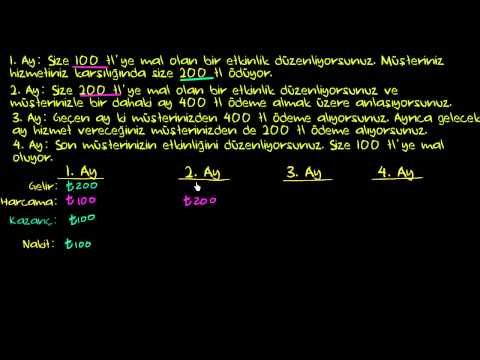 1. Ay: Size 100 tl'ye mal olan bir etkinlik düzenliyorsunuz. Müşteriniz
hizmetiniz karşılığında size 200 tl ödüyor.
2. Ay: Size 200 tl'ye mal olan bir etkinlik düzenliyorsunuz ve
müşterinizle bir dahaki ay 400 tl ödeme almak üzere anlaşıyorsunuz.
3. Ay: Geçen ay ki müşterinizden 400 tl ödeme alıyorsunuz. Ayrıca gelecek
ay hizmet vereceğiniz müşterinizden de 200 tl ödeme alıyorsunuz.
4. Ay: Son müşterinizin etkinliğini düzenliyorsunuz. Size 100 tl'ye mal
oluyor.
1. Ay 2. Ay 3. Ay 4. Ay
Gelir: ₺200
Harcama: ₺100 ₺200
Kazanç: ₺100
Nakit: ₺100